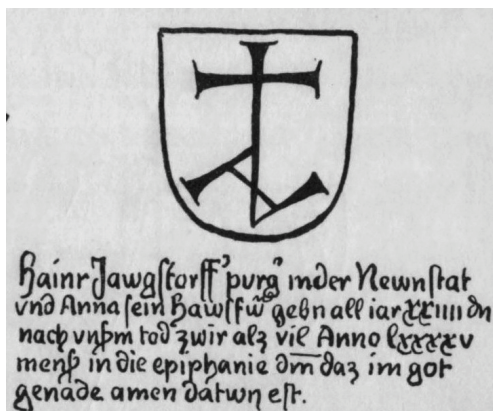 Hainr Jawgstorff' purg' inder Newnstat
vnd Anna sein Hawsffw gebn all iar XXIIII dn
nach vnßm tod zwir alz vil Anno lxxxxv
menß in die epiphanie dm daz im got
genade amen datwn est.